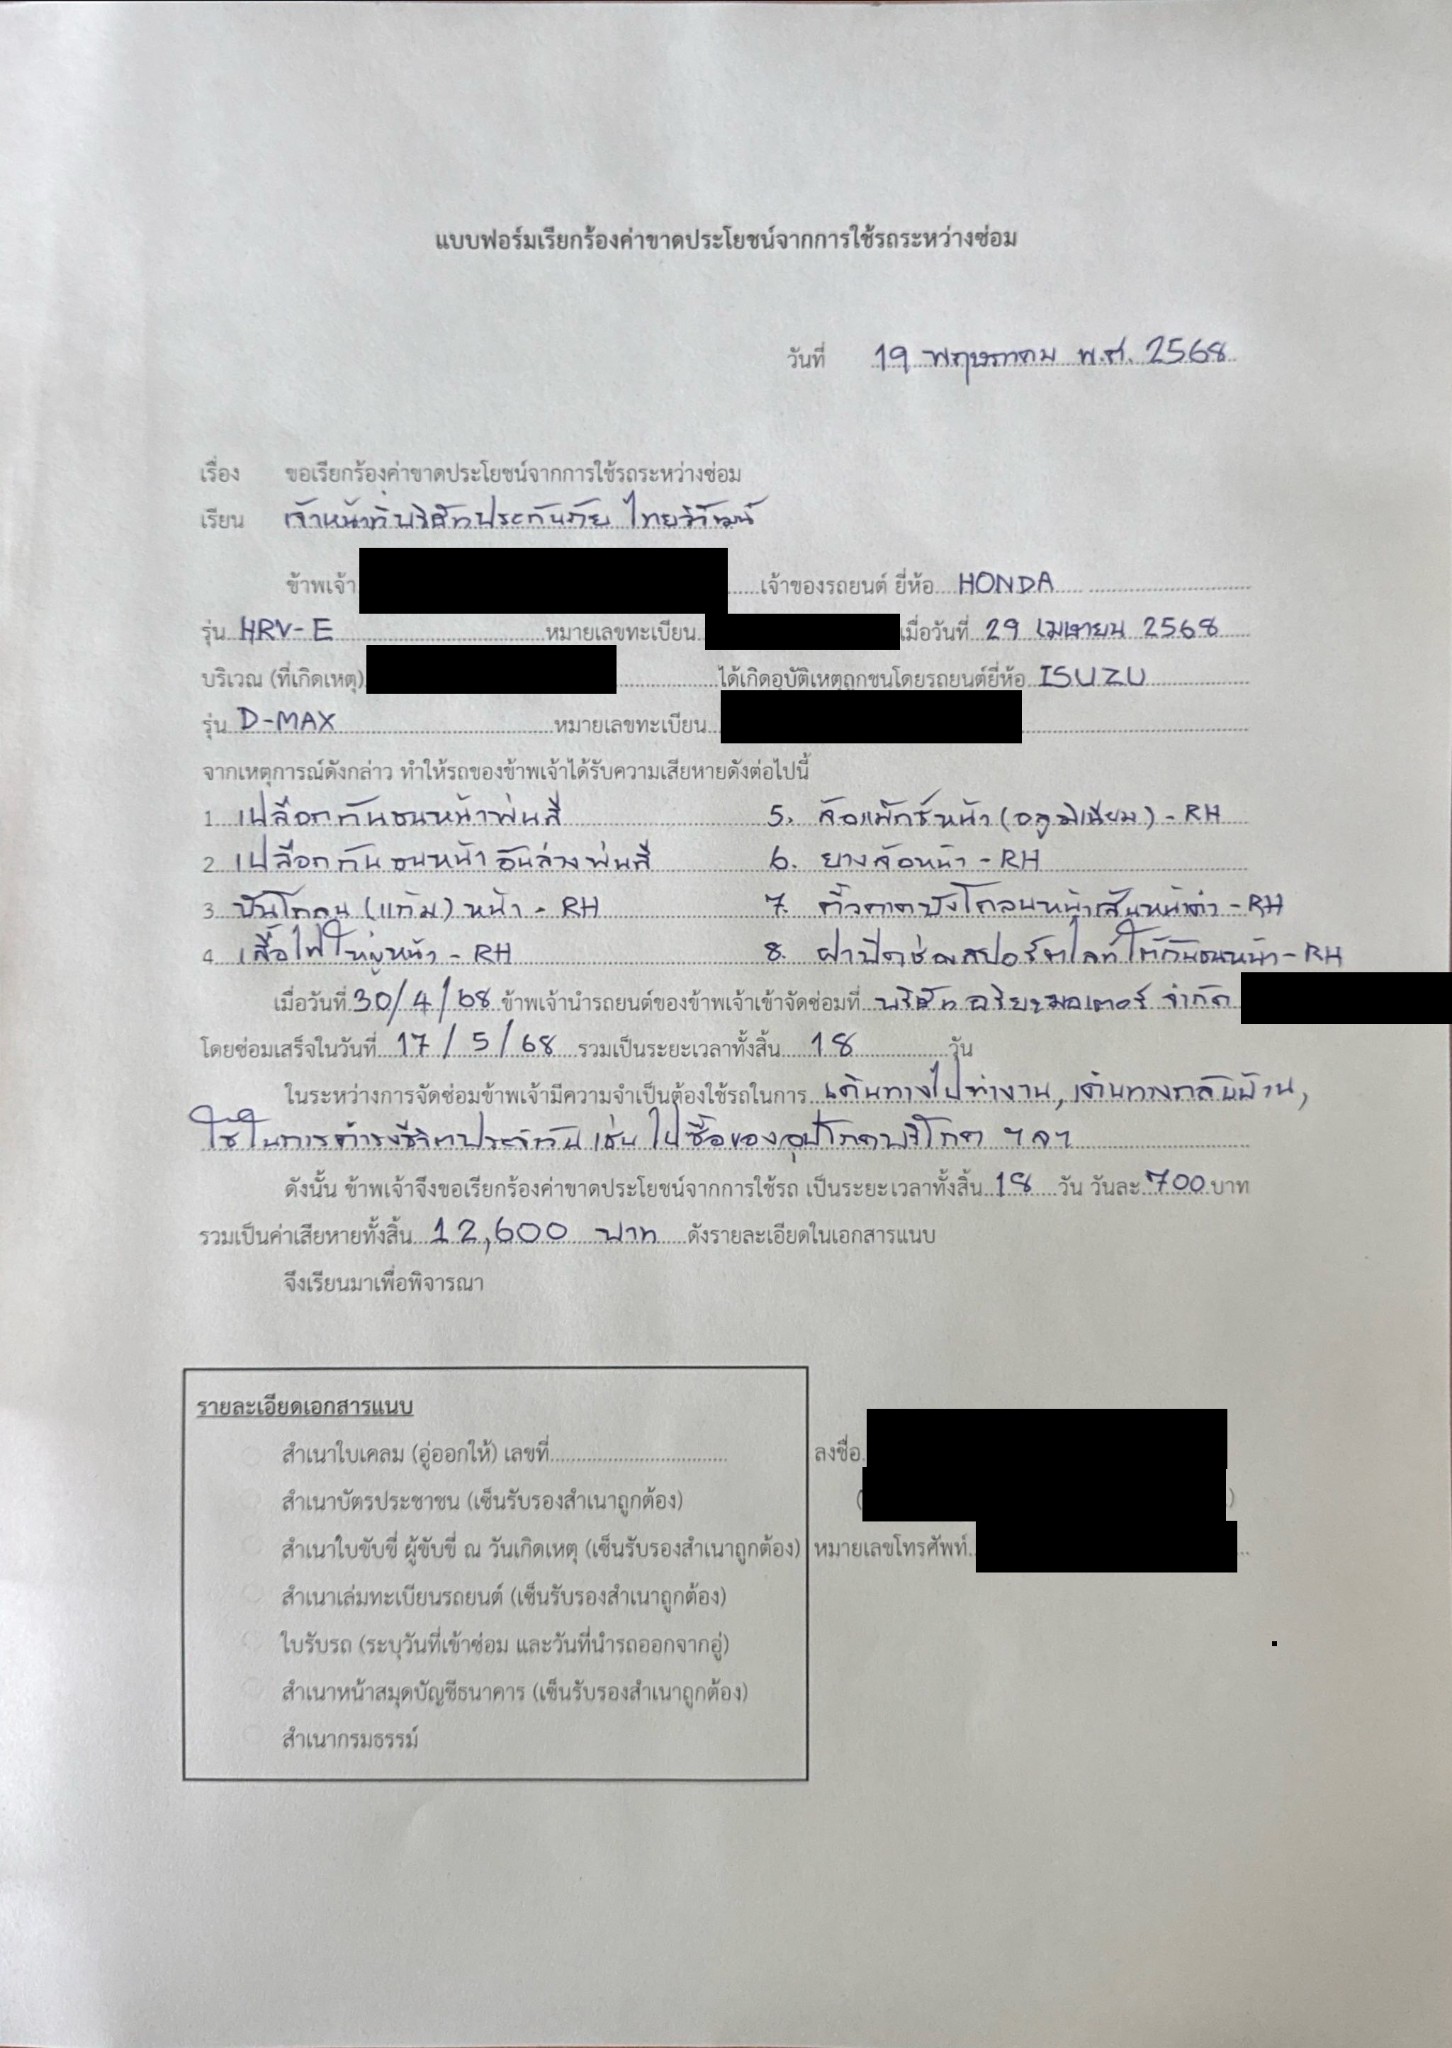 แบบฟอร์มเรียกร้องค่าขาดประโยชน์จากการใช้รถระหว่างซ่อม
วันที่ 19 พฤษภาคม พ.ศ. 2568
เรื่อง ขอเรียกร้องค่าขาดประโยชน์จากการใช้รถระหว่างซ่อม
เรียน เจ้าหน้าที่บริษัทประกันภัย ไทยวิวัฒน์
ข้าพเจ้า เจ้าของรถยนต์ ยี่ห้อ HONDA
รุ่น HRV-E หมายเลขทะเบียน เมื่อวันที่ 29 เมษายน 2568
บริเวณ (ที่เกิดเหตุ) ได้เกิดอุบัติเหตุถูกชนโดยรถยนต์ยี่ห้อ ISUZU
รุ่น D-MAX หมายเลขทะเบียน
จากเหตุการณ์ดังกล่าว ทำให้รถของข้าพเจ้าได้รับความเสียหายดังต่อไปนี้
1 เปลือกกันชนหน้าพ่นสี 5. ล้อแม็กซ์หน้า (อลูมิเนียม) - RH
2 เปลือกกันชนหน้าอันล่างพ่นสี 6. ยางล้อหน้า - RH
3 บังโคลน (แก้ม) หน้า - RH 7. คิ้วคาดบังโคลนหน้าเส้นหน้าดำ - RH
4 เสื้อไฟใหญ่หน้า - RH 8. ฝาปิดช่องสปอร์ตไลท์ใต้กันชนหน้า - RH
เมื่อวันที่ 30/4/68 ข้าพเจ้านำรถยนต์ของข้าพเจ้าเข้าจัดซ่อมที่ บริษัท อริยะมอเตอร์ จำกัด
โดยซ่อมเสร็จในวันที่ 17/5/68 รวมเป็นระยะเวลาทั้งสิ้น 18 วัน
ในระหว่างการจัดซ่อมข้าพเจ้ามีความจำเป็นต้องใช้รถในการ เดินทางไปทำงาน, เดินทางกลับบ้าน,
ใช้ในการดำรงชีวิตประจำวัน เช่น ไปซื้อของอุปโภคบริโภค ฯลฯ
ดังนั้น ข้าพเจ้าจึงขอเรียกร้องค่าขาดประโยชน์จากการใช้รถ เป็นระยะเวลาทั้งสิ้น 18 วัน วันละ 700 บาท
รวมเป็นค่าเสียหายทั้งสิ้น 12,600 บาท ดังรายละเอียดในเอกสารแนบ
จึงเรียนมาเพื่อพิจารณา
รายละเอียดเอกสารแนบ
สำเนาใบเคลม (อู่ออกให้) เลขที่ ลงชื่อ
สำเนาบัตรประชาชน (เซ็นรับรองสำเนาถูกต้อง) ( )
สำเนาใบขับขี่ ผู้ขับขี่ ณ วันเกิดเหตุ (เซ็นรับรองสำเนาถูกต้อง) หมายเลขโทรศัพท์
สำเนาเล่มทะเบียนรถยนต์ (เซ็นรับรองสำเนาถูกต้อง)
ใบรับรถ (ระบุวันที่เข้าซ่อม และวันที่นำรถออกจากอู่)
สำเนาหน้าสมุดบัญชีธนาคาร (เซ็นรับรองสำเนาถูกต้อง)
สำเนากรมธรรม์